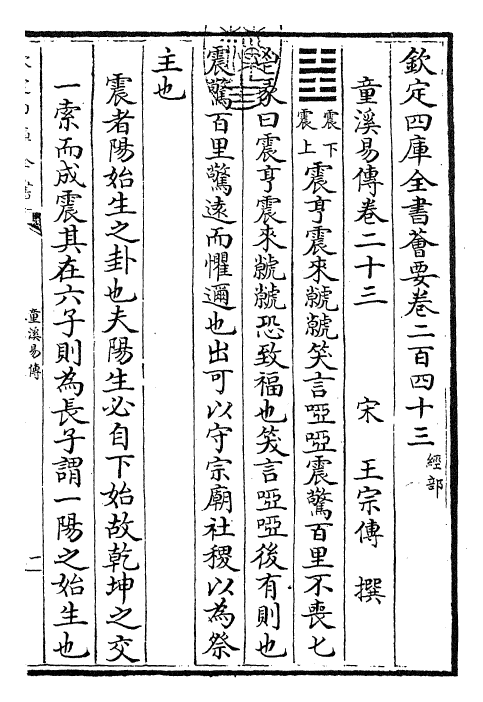 欽定四庫全書薈要卷二百四十三
經部
童溪易傳卷二十三　宋　王宗傳　撰
䷲
震下
震上
震亨震來虩虩笑言啞啞震驚百里不喪匕
鬯彖曰震亨震來虩虩恐致福也笑言啞啞後有則也
震驚百里驚遠而懼邇也出可以守宗廟社稷以為祭
主也
震者陽始生之卦也夫陽生必自下始故乾坤之交
一索而成震其在六子則為長子謂一陽之始生也
童溪易傳